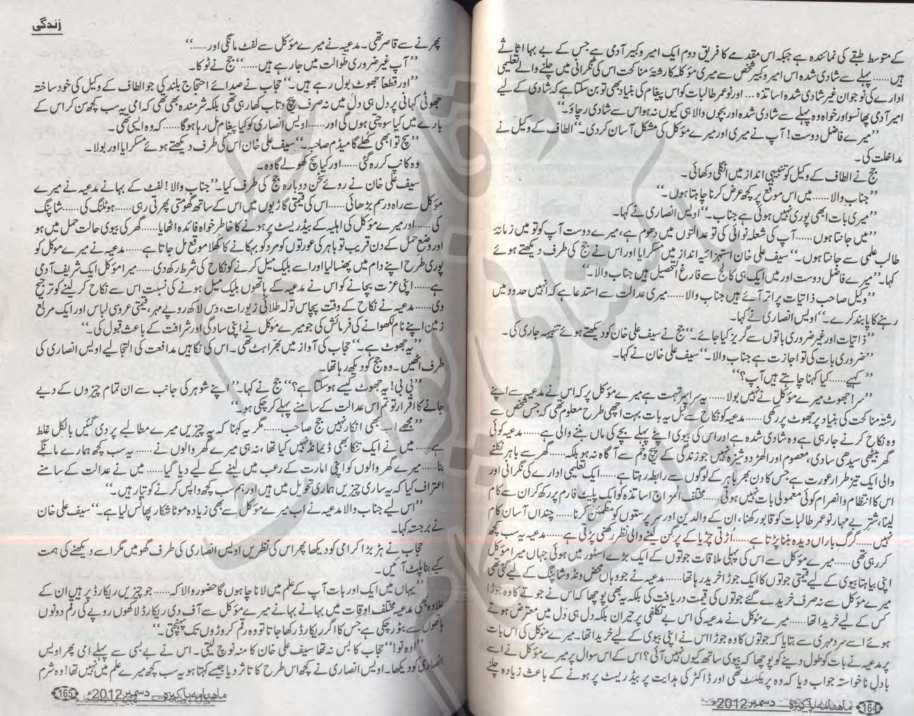 کے متوسط طبقے کی نمائندہ ہے جبکہ اس مقدمے کا فریق دوم ایک امیر وکبیر آدمی ہے جس کے بے بہا اثاثے
ہیں...... پہلے سے شادی شدہ اس امیر وکبیر شخص سے میری مؤکلہ کا رشتۂ مناکحت اس کی نگرانی میں چلنے والے تعلیمی
ادارے کی نوجوان غیر شادی شدہ اساتذہ ...... اور نو عمر طالبات کو اس پیغام کی بنیاد بھی تو بن سکتا ہے کہ شادی کے لیے
امیر آدمی پھانسو اور خواہ وہ پہلے سے شادی شدہ اور بچوں والا ہی کیوں نہ ہو اس سے شادی رچاؤ۔“
”میرے فاضل دوست! آپ نے میری اور میرے مؤکل کی مشکل آسان کردی۔“ الطاف کے وکیل نے
مداخلت کی۔
جج نے الطاف کے وکیل کو تنبیہی انداز میں انگلی دکھائی۔
”جناب والا...... میں اس موقع پر کچھ عرض کرنا چاہتا ہوں۔“
”میری بات ابھی پوری نہیں ہوئی ہے جناب۔“ اویس انصاری نے کہا۔
”میں جانتا ہوں...... آپ کی شعلہ نوائی کی تو عدالتوں میں دھوم ہے، میرے دوست آپ کو تو میں زمانۂ
طالب علمی سے جانتا ہوں۔“ سیف علی خان استہزائیہ انداز میں مسکرایا اور اس نے جج کی طرف دیکھتے ہوئے
کہا۔ ”میرے فاضل دوست اور میں ایک ہی کالج سے فارغ التحصیل ہیں جناب والا۔“
”وکیل صاحب ذاتیات پر اتر آئے ہیں جناب والا...... میری عدالت سے استدعا ہے کہ انہیں حدود میں
رہنے کا پابند کرے۔“ اویس انصاری نے کہا۔
”ذاتیات اور غیر ضروری باتوں سے گریز کیا جائے۔“ جج نے سیف علی خان کو دیکھتے ہوئے تنبیہہ جاری کی۔
”ضروری بات کی تو اجازت ہے جناب والا۔“ سیف علی خان نے کہا۔
”کہیے...... کیا کہنا چاہتے ہیں آپ؟“
”سر! جھوٹ میرے مؤکل نے نہیں بولا...... یہ سراسر تہمت ہے میرے مؤکل پر کہ اس نے مدعیہ سے اپنے
رشتۂ مناکحت کی بنیاد پر جھوٹ پر رکھی...... مدعیہ کو نکاح سے قبل یہ بات بہت اچھی طرح معلوم تھی کہ جس شخص سے
وہ نکاح کرنے جا رہی ہے وہ شادی شدہ ہے اور اس کی بیوی اپنے پہلے بچے کی ماں بننے والی ہے...... مدعیہ کوئی
گھر بیٹھی سیدھی سادی، معصوم اور الھڑ دوشیزہ نہیں جو زندگی کے پیچ وخم سے آگاہ نہ ہو بلکہ...... گھر سے باہر نکلنے
والی ایک تیز طرار عورت ہے جس کا دن بھر باہر کے لوگوں سے رابطہ رہتا ہے...... ایک تعلیمی ادارے کی نگرانی اور
اس کا انتظام وانصرام کوئی معمولی بات نہیں ہوتی...... مختلف المزاج اساتذہ کو ایک پلیٹ فارم پر رکھ کر ان سے کام
لینا، شتر بے مہار نو عمر طالبات کو قابو رکھنا، ان کے والدین اور سر پرستوں کو مطمئن کرنا...... چنداں آسان کام
نہیں...... گرگ باراں دیدہ بننا پڑتا ہے...... اڑتی چڑیا کے پر گن لینے والی نظر رکھنی پڑتی ہے...... مدعیہ یہ سب کچھ
کر رہی تھی...... میرے مؤکل سے اس کی پہلی ملاقات جوتوں کے ایک بڑے اسٹور میں ہوئی جہاں میرا مؤکل
اپنی بیاہتا بیوی کے لیے قیمتی جوتوں کا ایک جوڑا خرید رہا تھا...... مدعیہ نے جو وہاں محض ونڈو شاپنگ کے لیے گئی تھی
میرے مؤکل سے نہ صرف خریدے گئے جوتوں کی قیمت دریافت کی بلکہ یہ بھی پوچھا کہ اس نے جوتے کا وہ جوڑا
کس کے لیے خریدا تھا...... میرے مؤکل نے مدعیہ کی اس بے تکلفی پر حیران بلکہ دل ہی دل میں معترض ہوتے
ہوئے اسے سرد مہری سے بتایا کہ جوتوں کا وہ جوڑا اس نے اپنی بیوی کے لیے خریدا تھا۔ میرے مؤکل کی اس بات
پر مدعیہ نے بات کو طول دینے کو پوچھا کہ بیوی ساتھ کیوں نہیں آئی؟ اس کے اس سوال پر میرے مؤکل نے اسے
بادل ناخواستہ جواب دیا کہ وہ پریگننٹ تھی اور ڈاکٹر کی ہدایت پر بیڈ ریسٹ پر ہونے کے باعث زیادہ چلنے
ماہنامہ پاکیزہ دسمبر 2012ء 164
زندگی
پھرنے سے قاصر تھی۔ مدعیہ نے میرے مؤکل سے لفٹ مانگی اور......“
”آپ غیر ضروری طوالت میں جا رہے ہیں......“ جج نے ٹوکا۔
”اور قطعاً جھوٹ بول رہے ہیں۔“ حجاب نے صدائے احتجاج بلند کی جو الطاف کے وکیل کی خود ساختہ
جھوٹی کہانی پر دل ہی دل میں نہ صرف پیچ وتاب کھا رہی تھی بلکہ شرمندہ بھی تھی کہ امی یہ سب کچھ سن کر اس کے
بارے میں کیا سوچتی ہوں گی اور...... اویس انصاری کو کیا پیغام مل رہا ہوگا...... کہ وہ ایسی تھی۔
”سچ تو ابھی کھلے گا میڈم صاحبہ۔“ سیف علی خان اس کی طرف دیکھتے ہوئے مسکرایا اور بولا۔
وہ کانپ کر رہ گئی...... اور کیا سچ کھولے گا وہ۔
سیف علی خان نے روئے سخن دوبارہ جج کی طرف کیا۔ ”جناب والا! لفٹ کے بہانے مدعیہ نے میرے
مؤکل سے راہ ورسم بڑھائی...... اس کی قیمتی گاڑیوں میں اس کے ساتھ گھومتی پھرتی رہی...... ہوٹلنگ کی...... شاپنگ
کی...... اور میرے مؤکل کی اہلیہ کے بیڈ ریسٹ پر ہونے کا خاطر خواہ فائدہ اٹھایا...... گھر کی بیوی حالت حمل میں ہو
اور وضع حمل کے دن قریب تو باہر کی عورتوں کو مرد کو بہکانے کا کھلا موقع مل جاتا ہے...... مدعیہ نے میرے مؤکل کو
پوری طرح اپنے دام میں پھنسا لیا اور اسے بلیک میل کرنے کو نکاح کی شرط رکھ دی...... میرا مؤکل ایک شریف آدمی
ہے...... اپنی عزت بچانے کو اس نے مدعیہ کے ہاتھوں بلیک میل ہونے کی نسبت اس سے نکاح کر لینے کو ترجیح
دی...... مدعیہ نے نکاح کے وقت پچاس تولہ طلائی زیورات، دس لاکھ روپے مہر، قیمتی عروسی لباس اور ایک مربع
زمین اپنے نام لکھوانے کی فرمائش کی جو میرے مؤکل نے اپنی سادگی اور شرافت کے باعث قبول کی۔“
”یہ جھوٹ ہے۔“ حجاب کی آواز میں تھرتھراہٹ تھی۔ اس کی نگاہیں مدافعت کی التجا لیے اویس انصاری کی
طرف اٹھیں۔ وہ جج کو دیکھ رہا تھا۔
”بی بی! یہ جھوٹ کیسے ہو سکتا ہے؟“ جج نے کہا۔ ”اپنے شوہر کی جانب سے ان تمام چیزوں کے دیے
جانے کا اقرار تو تم اس عدالت کے سامنے پہلے کر چکی ہو۔“
”مجھے اب بھی انکار نہیں جج صاحب...... مگر یہ کہنا کہ یہ چیزیں میرے مطالبے پر دی گئیں بالکل غلط
ہے...... میں نے ایک تنکا بھی ڈیمانڈ نہیں کیا تھا، نہ ہی میرے گھر والوں نے...... یہ سب کچھ ہمارے مانگے
بنا...... میرے گھر والوں کو اپنی امارت کے رعب میں لینے کے لیے دیا گیا...... میں نے عدالت کے سامنے
اعتراف کیا کہ یہ ساری چیزیں ہماری تحویل میں ہیں اور ہم سب کچھ واپس کرنے کو تیار ہیں۔“
”اس لیے جناب والا مدعیہ نے اب میرے مؤکل سے بھی زیادہ موٹا شکار پھانس لیا ہے۔“ سیف علی خان
نے برجستہ کہا۔
حجاب نے ہڑبڑا کر امی کو دیکھا پھر اس کی نظریں اویس انصاری کی طرف گھومیں مگر اسے دیکھنے کی ہمت
کیے بنا پلٹ آئیں۔
”یہاں میں ایک اور بات آپ کے علم میں لانا چاہوں گا حضور والا کہ...... جو چیزیں ریکارڈ پر ہیں ان کے
علاوہ بھی مدعیہ مختلف اوقات میں بہانے بہانے میرے مؤکل سے آف دی ریکارڈ لاکھوں روپے کی رقم دونوں
ہاتھوں سے بٹور چکی ہے جس کا اگر ریکارڈ رکھا جاتا تو وہ رقم کروڑوں تک پہنچتی۔“
”اوہ نو!“ حجاب کا بس نہ تھا سیف علی خان کا منہ نوچ لیتی۔ اس نے بے بسی سے پہلے امی پھر اویس
انصاری کو دیکھا۔ اویس انصاری نے کچھ اس طرح کا تاثر دیا جیسے کہتا ہو یہ سب کچھ میرے علم میں نہیں تھا! وہ شرم
ماہنامہ پاکیزہ دسمبر 2012ء 165